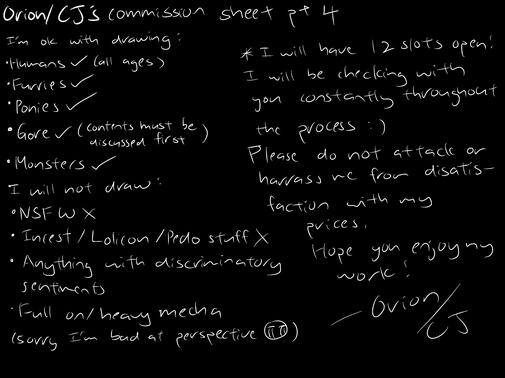 Orion/CJ's commission sheet pt 4
I'm ok with drawing:
•Humans ✓ (all ages)
•Furries ✓
•Ponies ✓
•Gore ✓ (contents must be
discussed first)
•Monsters ✓
I will not draw:
•NSFW X
•Incest/Lolicon/Pedo stuff X
•Anything with discriminatory
sentiments
•Full on/heavy mecha
(sorry I'm bad at perspective
* I will have 12 slots open!
I will be checking with
you constantly throughout
the process :)
Please do not attack or
harrass me from disatis-
faction with my
prices.
Hope you enjoy my
work!
— Orion/
CJ